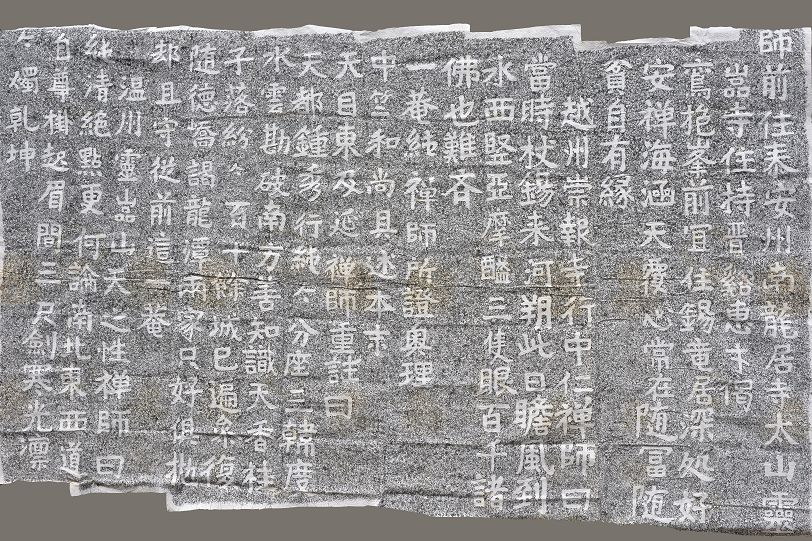 師前往泰安州南龍居寺太山靈
嵓寺住持晋谿惠才偈
鸞抱峯前宜住錫竜居深処好
安禅海涵天覆心常在随富随
貧自有縁
越州崇報寺行中仁禅師曰
當時杖錫来河朔此日瞻風到
水西竪亞摩醯三隻眼百千諸
佛也難吞
一菴結禅師所證奥理
中竺和尚具述本末
天目東及延禅師重註曰
天都鍾秀行純々分座三韓度
水雲勘破南方善知識天香桂
子落紛々百十絲城巳遍条復
随德嶠謁龍潭兩家只好俱拗
却且守従前這一菴
温州靈嵓山天之性禅師曰
絲清絕點更何論南北東西道
自尊掛起眉間三尺劍寒光凛
々燭乾坤